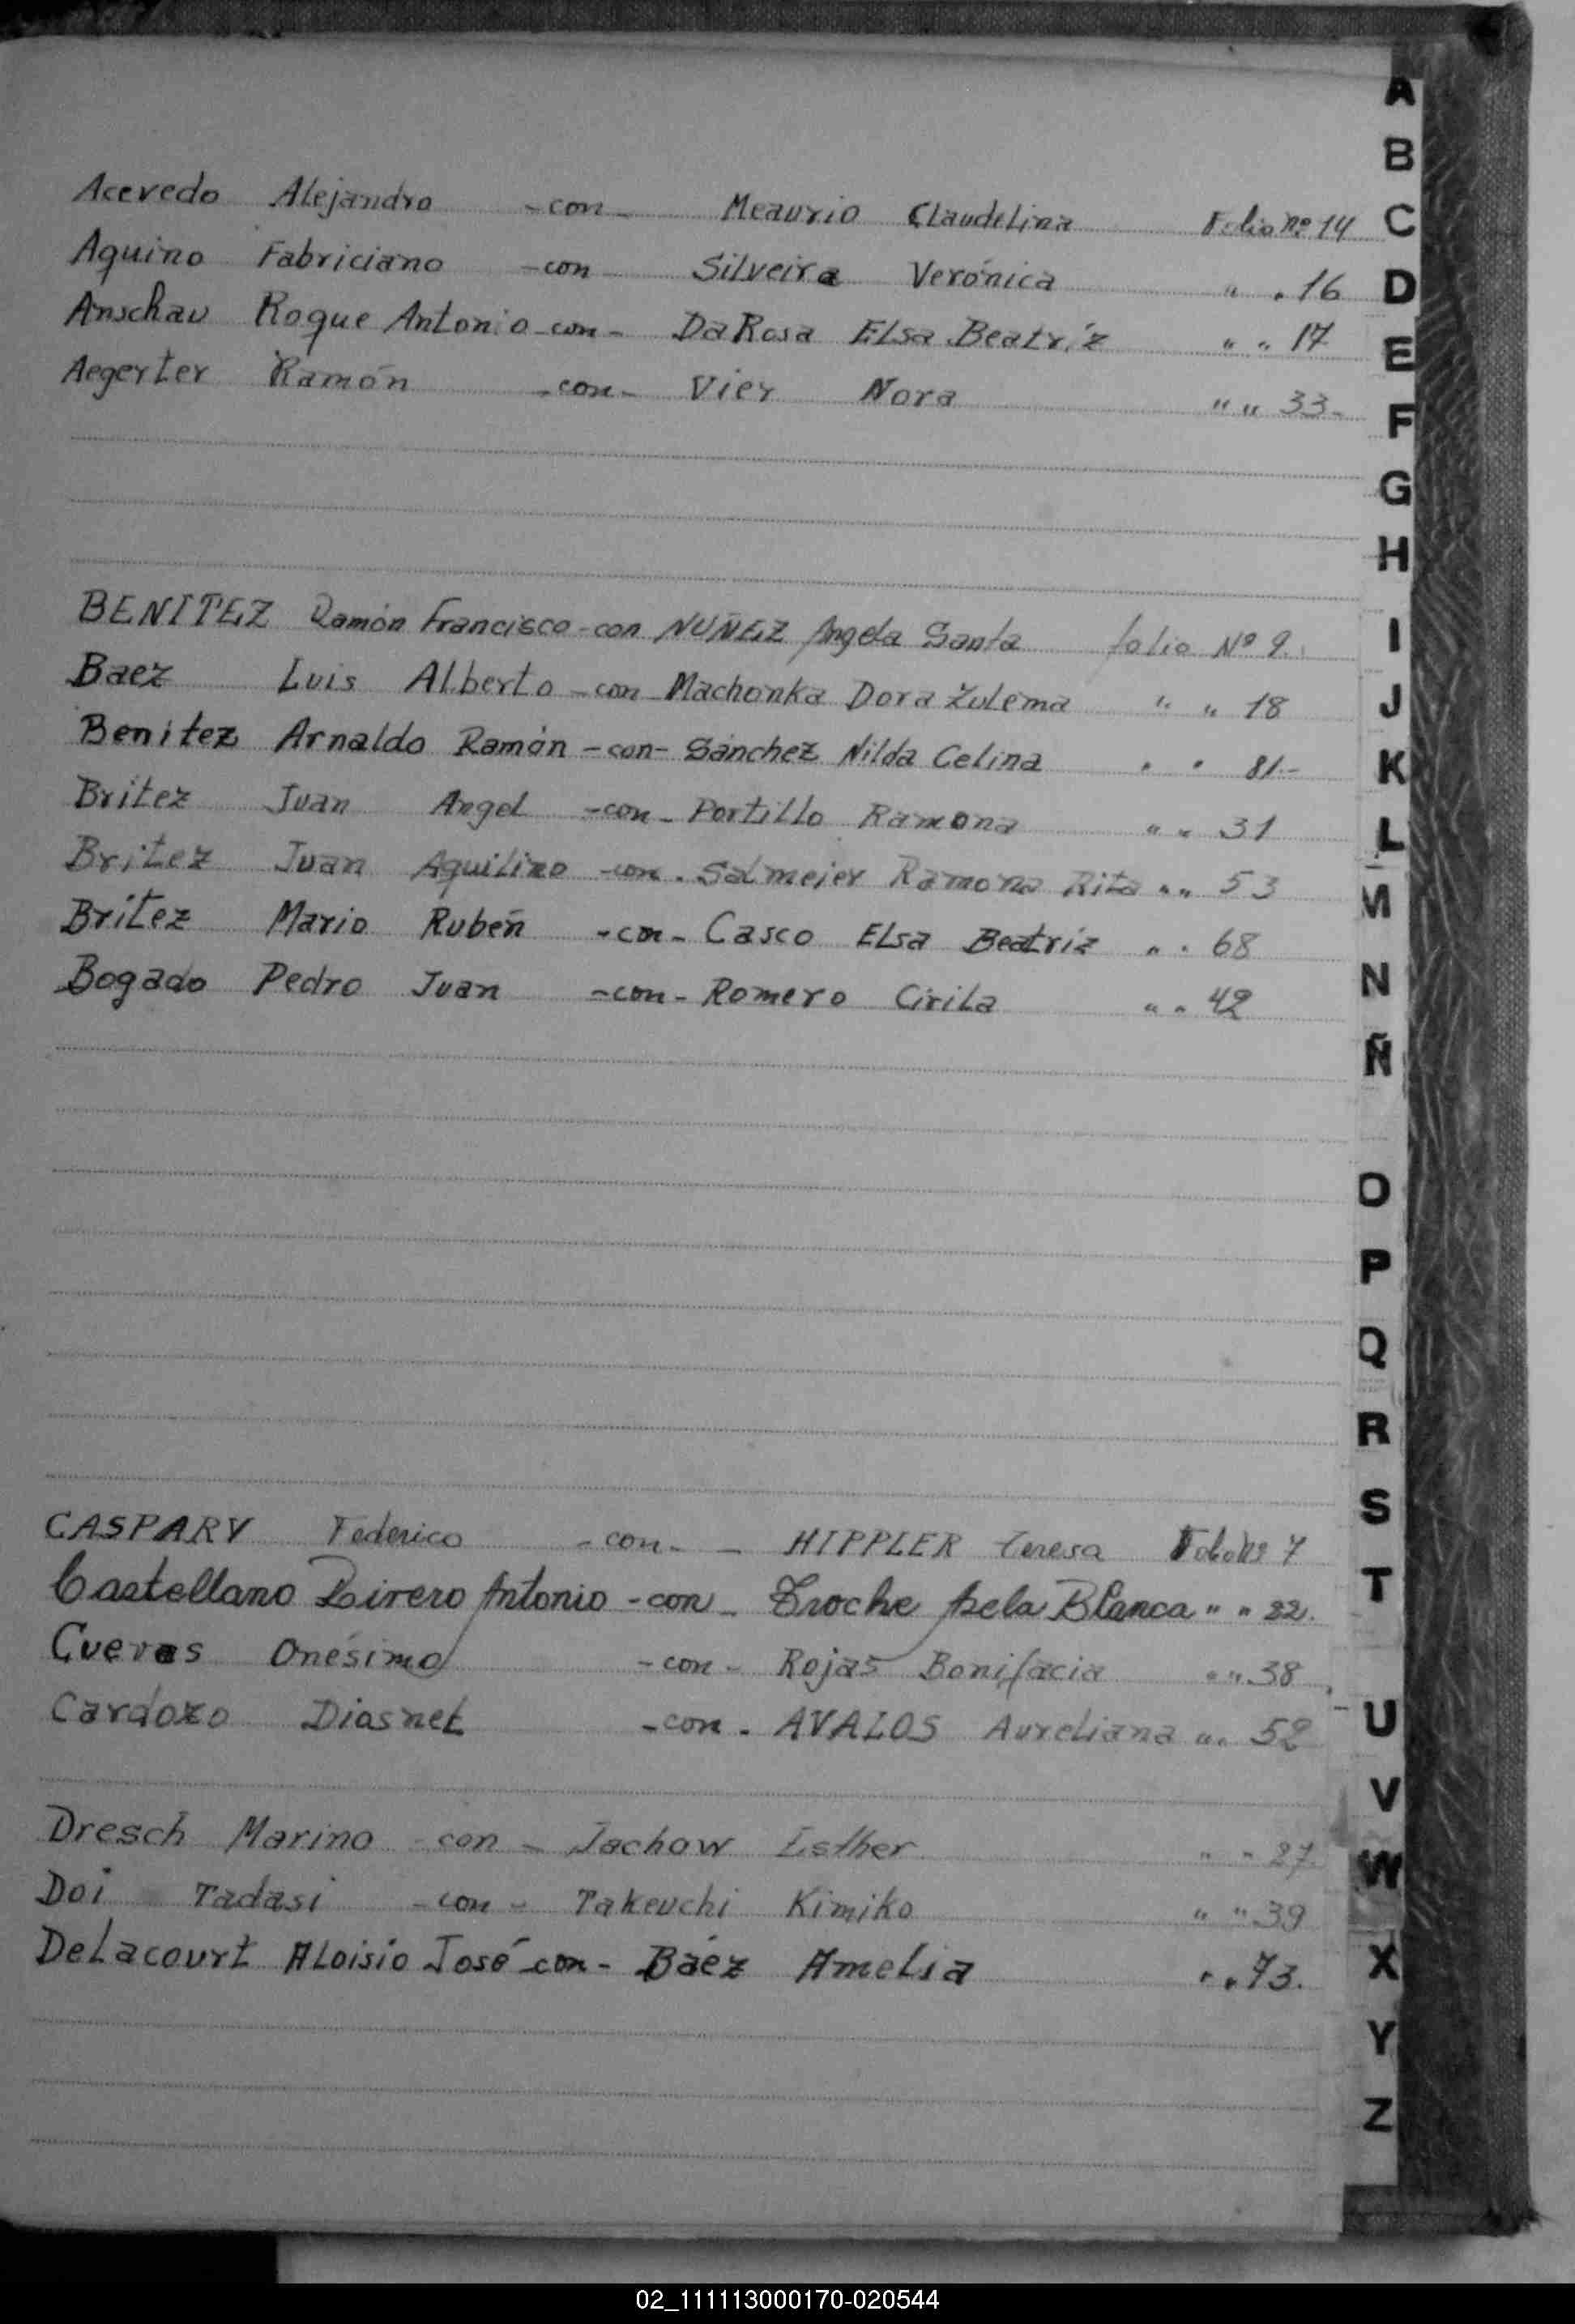 Acevedo Alejandro -con- Meaurio Claudelina Folio Nº 14
Aquino Fabriciano -con Silveira Verónica " . 16
Anschau Roque Antonio -con- Da Rosa Elsa Beatríz " " 17
Aegerter Ramón -con- Vier Nora " " 33-
BENITEZ Ramón Francisco -con NUÑEZ Angela Santa folio Nº 9.
Baez Luis Alberto -con- Machonka Dora Zulema " " 18
Benitez Arnaldo Ramón -con- Sánchez Nilda Celina " " 81.-
Britez Juan Angel -con- Portillo Ramona " " 31
Britez Juan Aquilino -con- Salmejer Ramona Rita " " 53
Britez Mario Rubén -con- Casco Elsa Beatriz " " 68
Bogado Pedro Juan -con- Romero Cirila " " 42
CASPARY Federico -con- - HIPPLER Teresa Folio Nº 7
Castellano Livero Antonio -con- Troche pela Blanca " " 22.
Cuevas Onésimo -con- Rojas Bonifacia " " 38
Cardozo Diasnel -con- AVALOS Aureliana " " 52
Dresch Marino con - Jachow Esther " " 27.
Doi Tadasi -con- Takeuchi Kimiko " " 39
Delacourt Aloisio José -con- Báez Amelia " " 73.
A
B
C
D
E
F
G
H
I
J
K
L
M
N
Ñ
O
P
Q
R
S
T
U
V
W
X
Y
Z
02_111113000170-020544